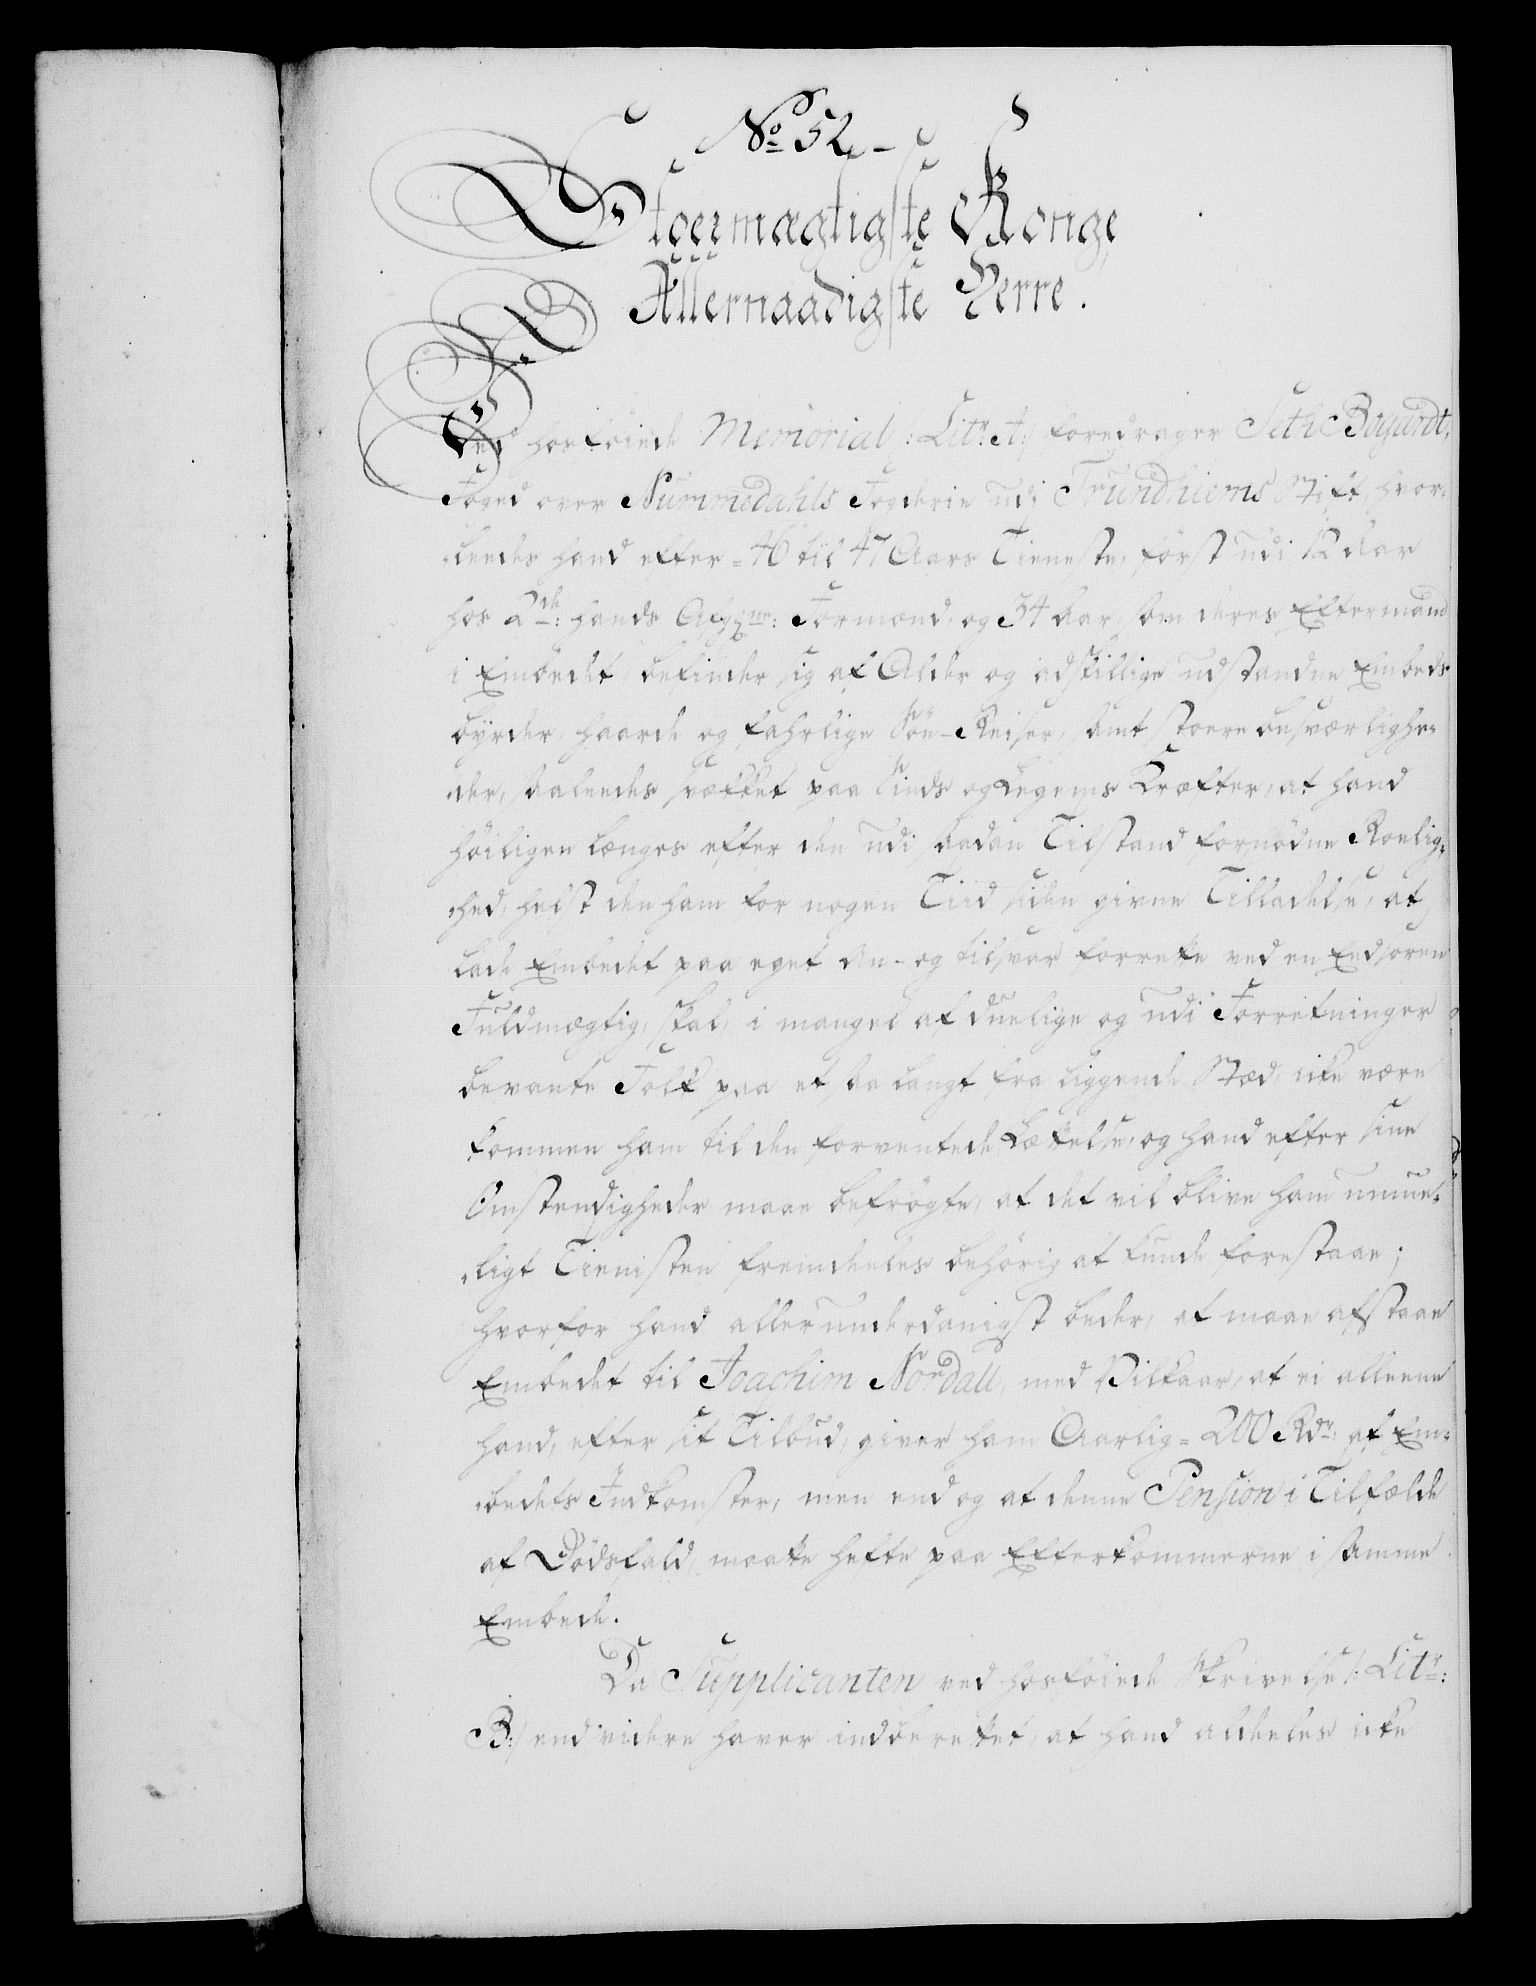 No 52 -
Stoermægtigste Konge,
Allernaadigste Herre.
Ved hosføiede Memorial /: Litr: A :/ foredrager Seth Bogardt,
Foged over Nummedahls Fogderie udi Trundhiems Stift, hvor-
-ledes hand efter = 46 til 47 Aars Tieneste, først udi 12 Aar
hos 2de: hands Afgne: Formænd, og 34 Aar, som deres Eftermand
i Embedet, befinder sig af Alder og adskillige udstandne Embeds
byrder, haarde og fahrlige Søe-Reiser, samt stoere besværlighe-
-der, saaledes svækket paa Sinds og Legems Kræfter, at hand
høiligen længes efter den udi saadan Tilstand fornødne Roelig-
-hed, helst den ham for nogen Tiid siden givne Tilladelse, at
lade Embedet paa eget An- og tilsvar forrette ved en Eedsoren
Fuldmægtig, skal, i mangel af duelige og udi Forretninger
bevante Folk paa et saa langt fra liggende Stæd, icke være
kommen ham til den forventede Lættelse, og hand efter sine
Omstendigheder maae befrøgte, at det vil blive ham umue-
-ligt Tienisten fremdeeles behørig at kunde forestaae;
hvorfor hand allerunderdanigst beder, at maae afstaae
Embedet til Joachim Nordall, med Vilkaar, at ei alleene
hand, efter sit Tilbud, giver ham Aarlig = 200 Rdr: af Em-
-bedets Indkomster, men end og at denne Pension i Tilfælde
af Dødsfald, maatte hefte paa Efterkommerne i samme
Embede.
Da Supplicanten ved hosføiede Skrivelse /: Litr:
B :/ end videre haver indberettet, at hand aldeeles icke